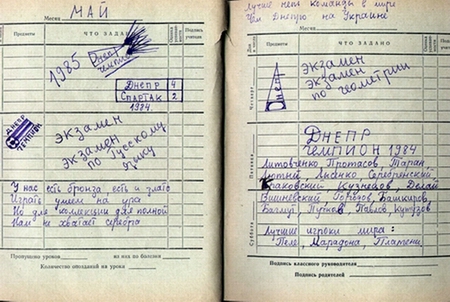 МАЙ
Месяц
Предметы
ЧТО ЗАДАНО
Подпись учителя
1985
Днепр
ДНЕПР 4
СПАРТАК 2
1984.
ДНЕПР
ЧЕМПИОН
экзамен
экзамен
по русскому
языку
У нас есть бронза, есть и злато
Играть умеем на ура
Но для коллекции для полной
Нам не хватает серебра
Пропущено уроков
из них по болезни
Количество опозданий на уроки
Лучше нет команды в мире
Чем Днепр на Украине
Месяц
Предметы
ЧТО ЗАДАНО
Подпись учителя
Днепр
экзамен
экзамен
по геометрии
Пятница
ДНЕПР
ЧЕМПИОН 1984
Литовченко Протасов Таран
Лютый Лысенко Серебрянский
Краковский Кузнецов, Делай
Вишневский Городов, Башкиров,
Багмут, Пучков Павлов Кутузов
Суббота
Лучшие игроки мира:
"Пеле, Марадона, Платини
Подпись классного руководителя
Подпись родителей